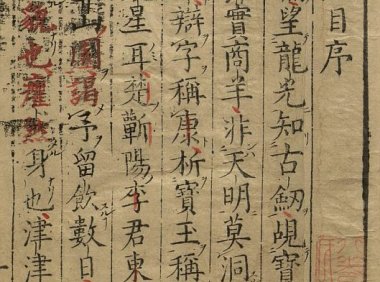 目序
望龍光知古劔覘寶
實商羊非天明莫洞
辯字稱康析寶王稱
星耳楚蘄陽李君東
山園謁予留飲數日
貌也癯然身也津津